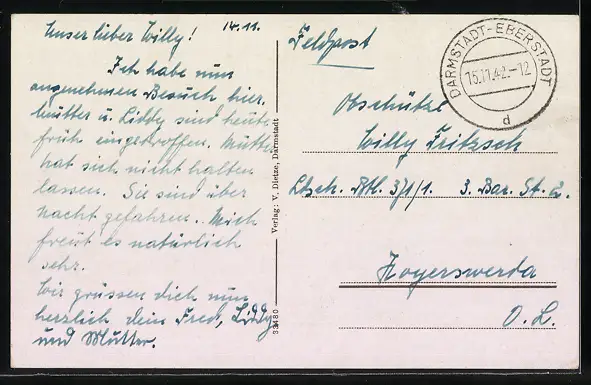 14.11.
Unser lieber Willy!
Ich habe nun
angenehmen Besuch hier.
Mutter u. Liddy sind heute
früh eingetroffen. Mutter
hat sich nicht halten
lassen. Sie sind über
Nacht gefahren. Mich
freut es natürlich
sehr.
Wir grüssen dich nun
herzlich dein Fred, Liddy
und Mutter.
Verlag: V. Dietze, Darmstadt
33480
Feldpost
DARMSTADT-EBERSTADT
15.11.42-12
d
Obschütze
Willy Fritzsch
Ldsch. Btl. 3/1/1. 3. Bar. St.
Hoyerswerda
O.L.